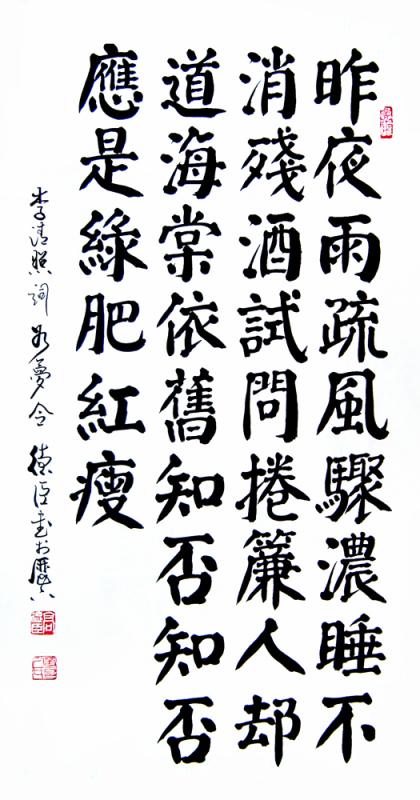 昨夜雨疏風驟濃睡不
消殘酒試問捲簾人却
道海棠依舊知否知否
應是綠肥紅瘦
李清照詞如夢令 德臣书於